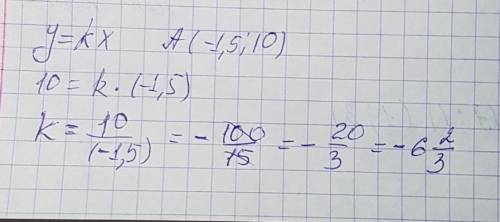 y=kx A(-1,5; 10)
10 = k · (-1,5)
k = 10/(-1,5) = - 100/15 = - 20/3 = -6 2/3